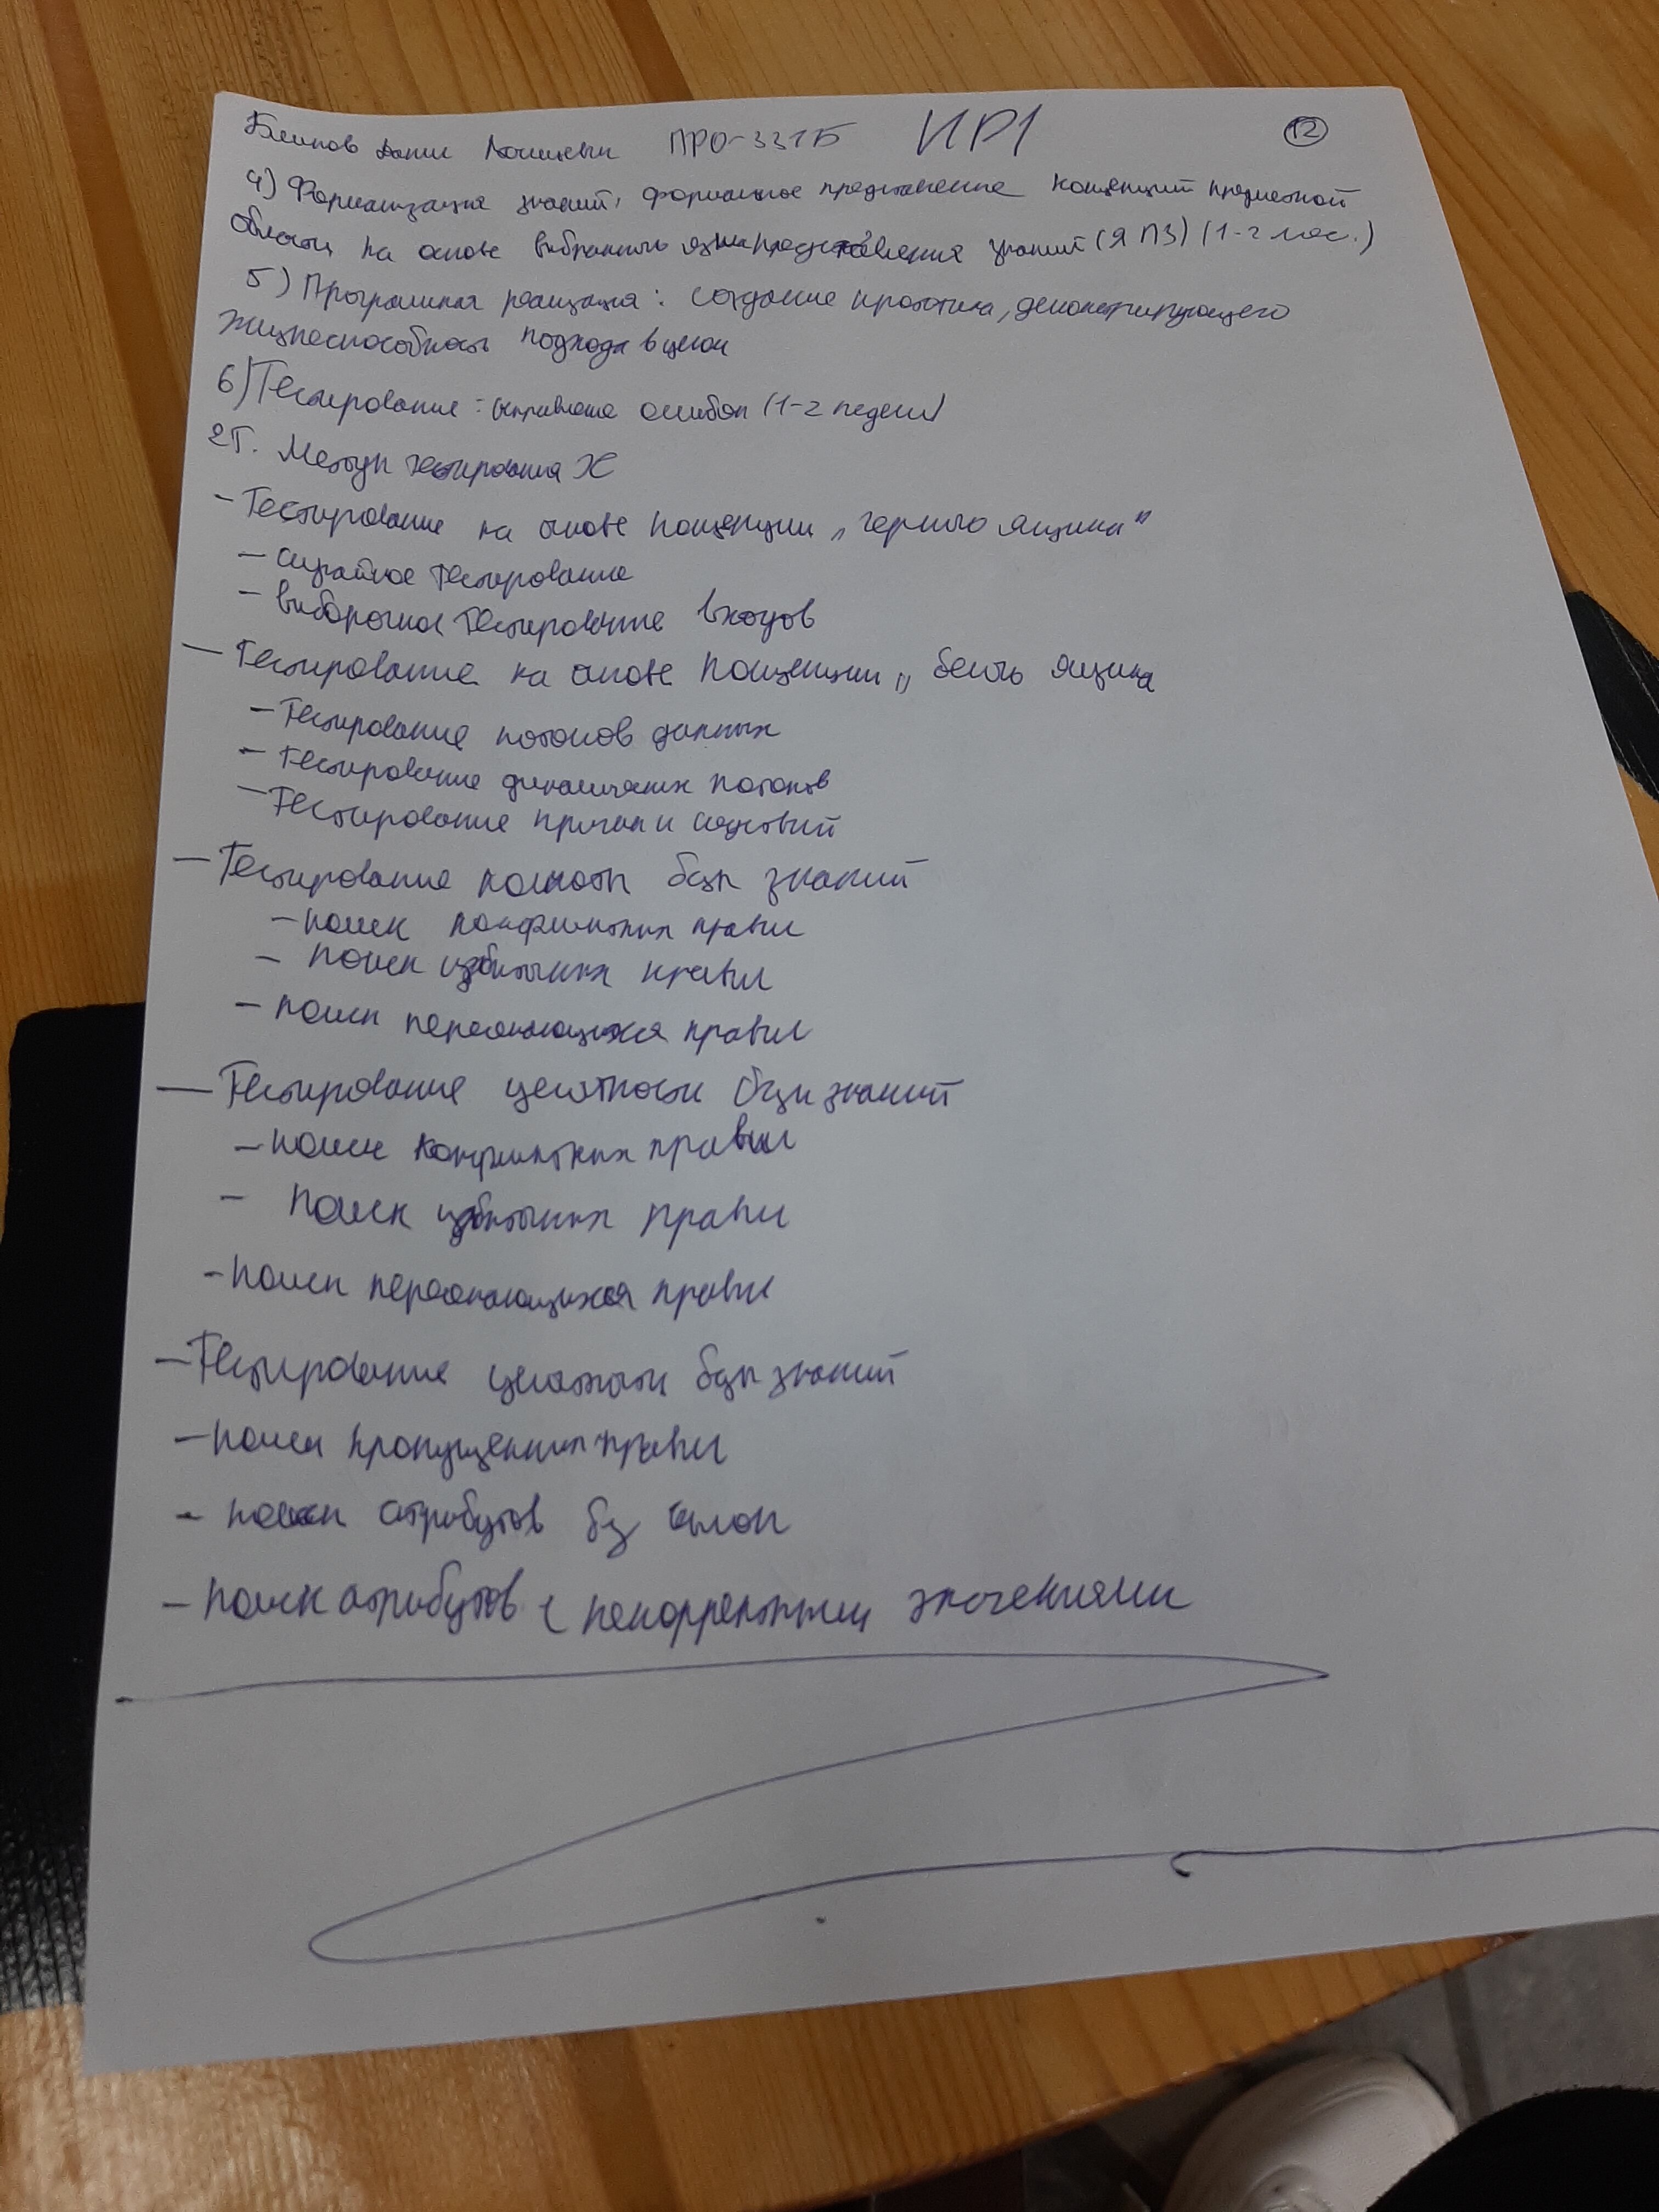 Блинов Данис ПРО-331Б ИР1 12
4) Формализация знаний: формальное представление концепций предметной
области на основе выбранного языка представления знаний (ЯПЗ) (1-2 мес.)
5) Программная реализация: создание прототипа, демонстрирующего
жизнеспособность подхода в целом
6) Тестирование: исправление ошибок (1-2 недели)
2Т. Методы тестирования
- Тестирование на основе концепции „черного ящика"
- случайное тестирование
- выборочное тестирование входов
- Тестирование на основе концепции „белого ящика
- Тестирование потоков данных
- Тестирование динамических потоков
- Тестирование причин и следствий
- Тестирование полноты базы знаний
- поиск конфликтных правил
- поиск избыточных правил
- поиск пересекающихся правил
- Тестирование целостности базы знаний
- поиск конфликтных правил
- поиск избыточных правил
- поиск пересекающихся правил
- Тестирование целостности базы знаний
- поиск пропущенных правил
- поиск атрибутов без ссылок
- поиск атрибутов с некорректными значениями